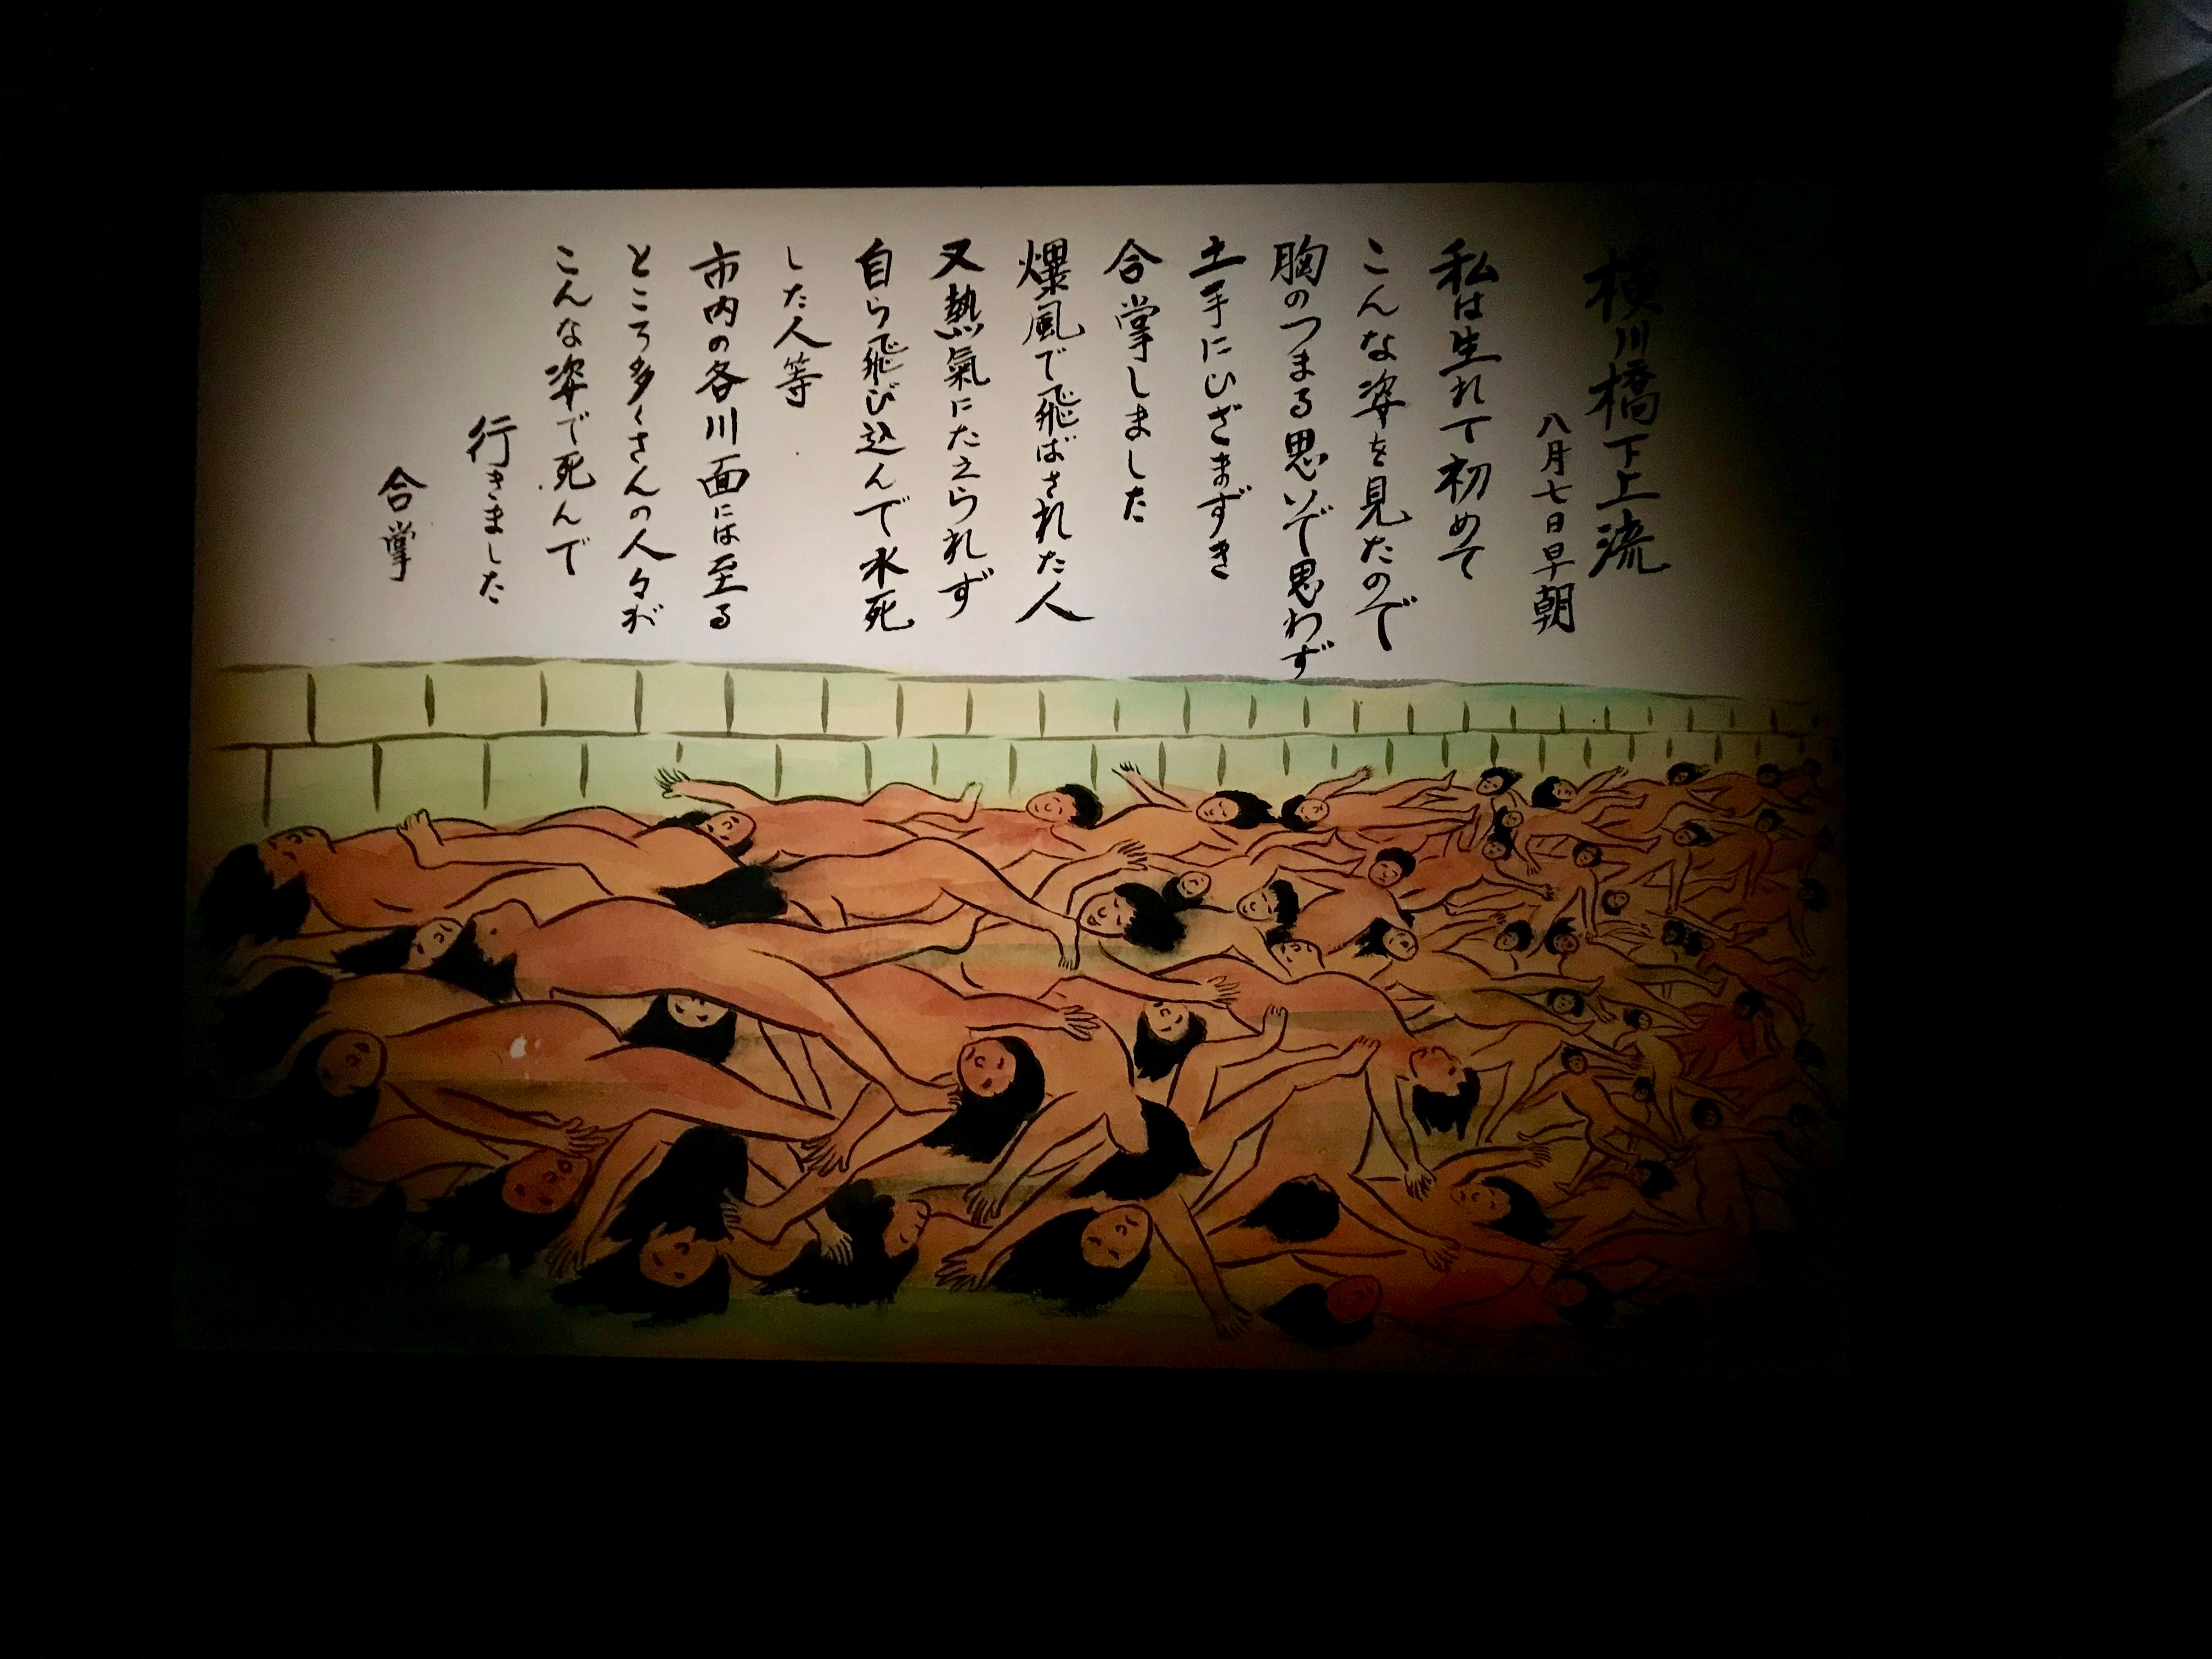 横川橋下上流
八月七日早朝
私は生れて初めて
こんな姿を見たので
胸のつまる思いで思わず
土手にいざまずき
合掌しました
爆風で飛ばされた人
又熱氣にたえられず
自ら飛び込んで水死
した人等
市内の各川面には至る
ところ多くさんの人々が
こんな姿で死んで
行きました
合掌